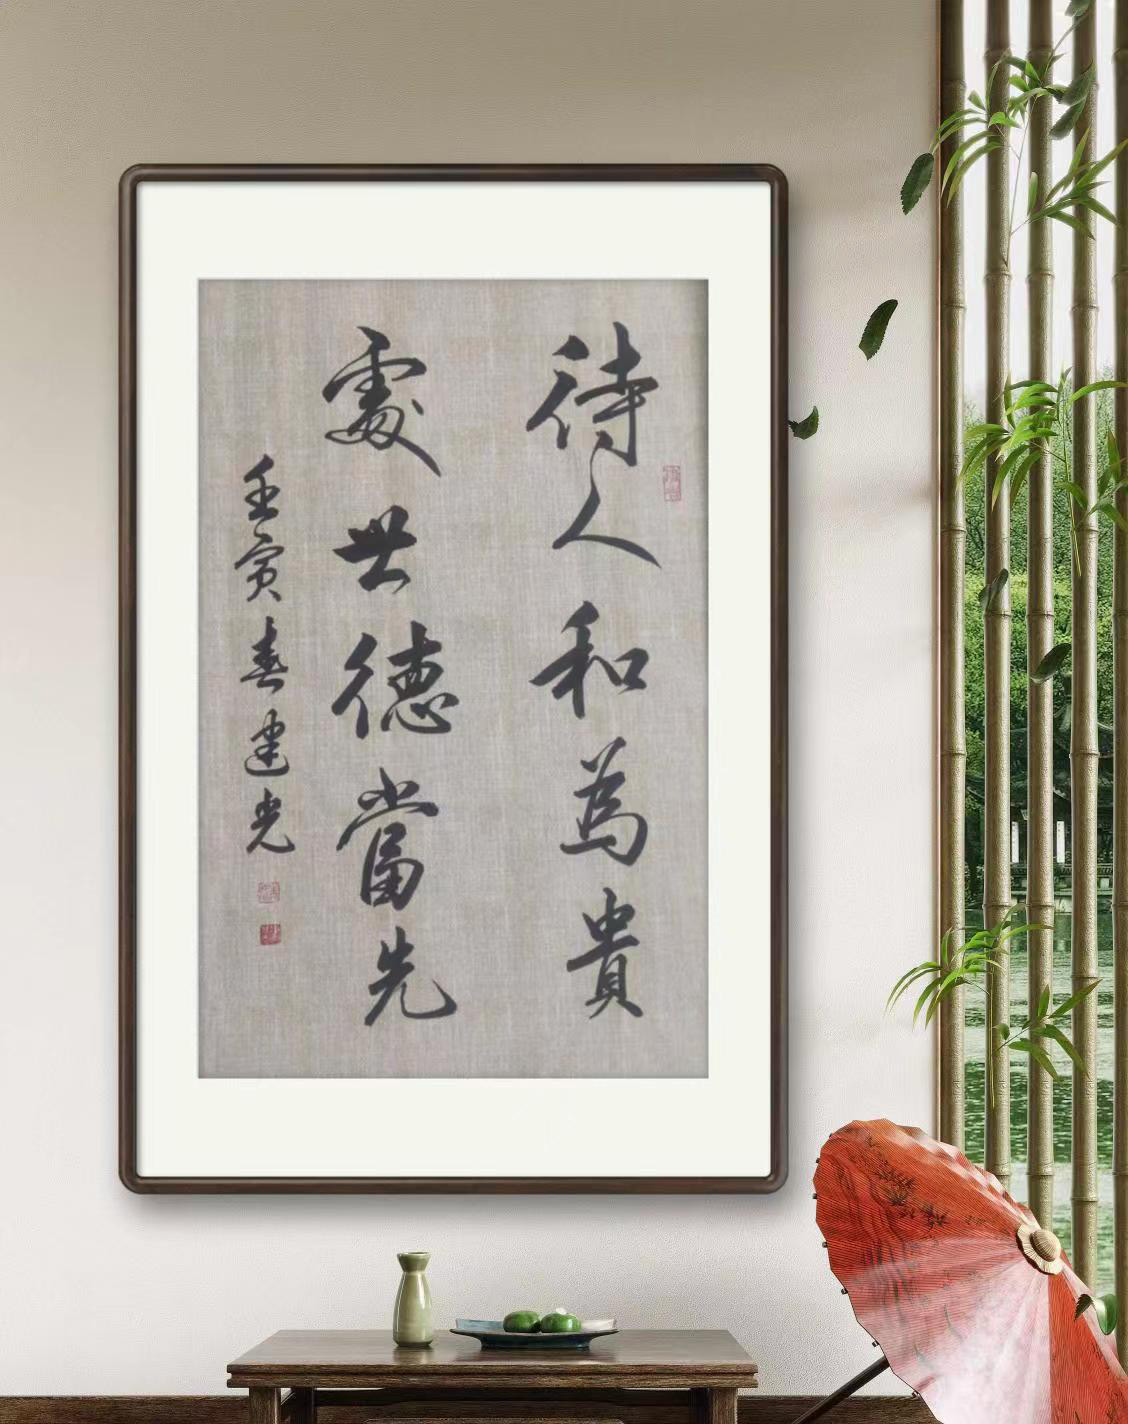 待人和為貴
處世德當先
壬寅春建光